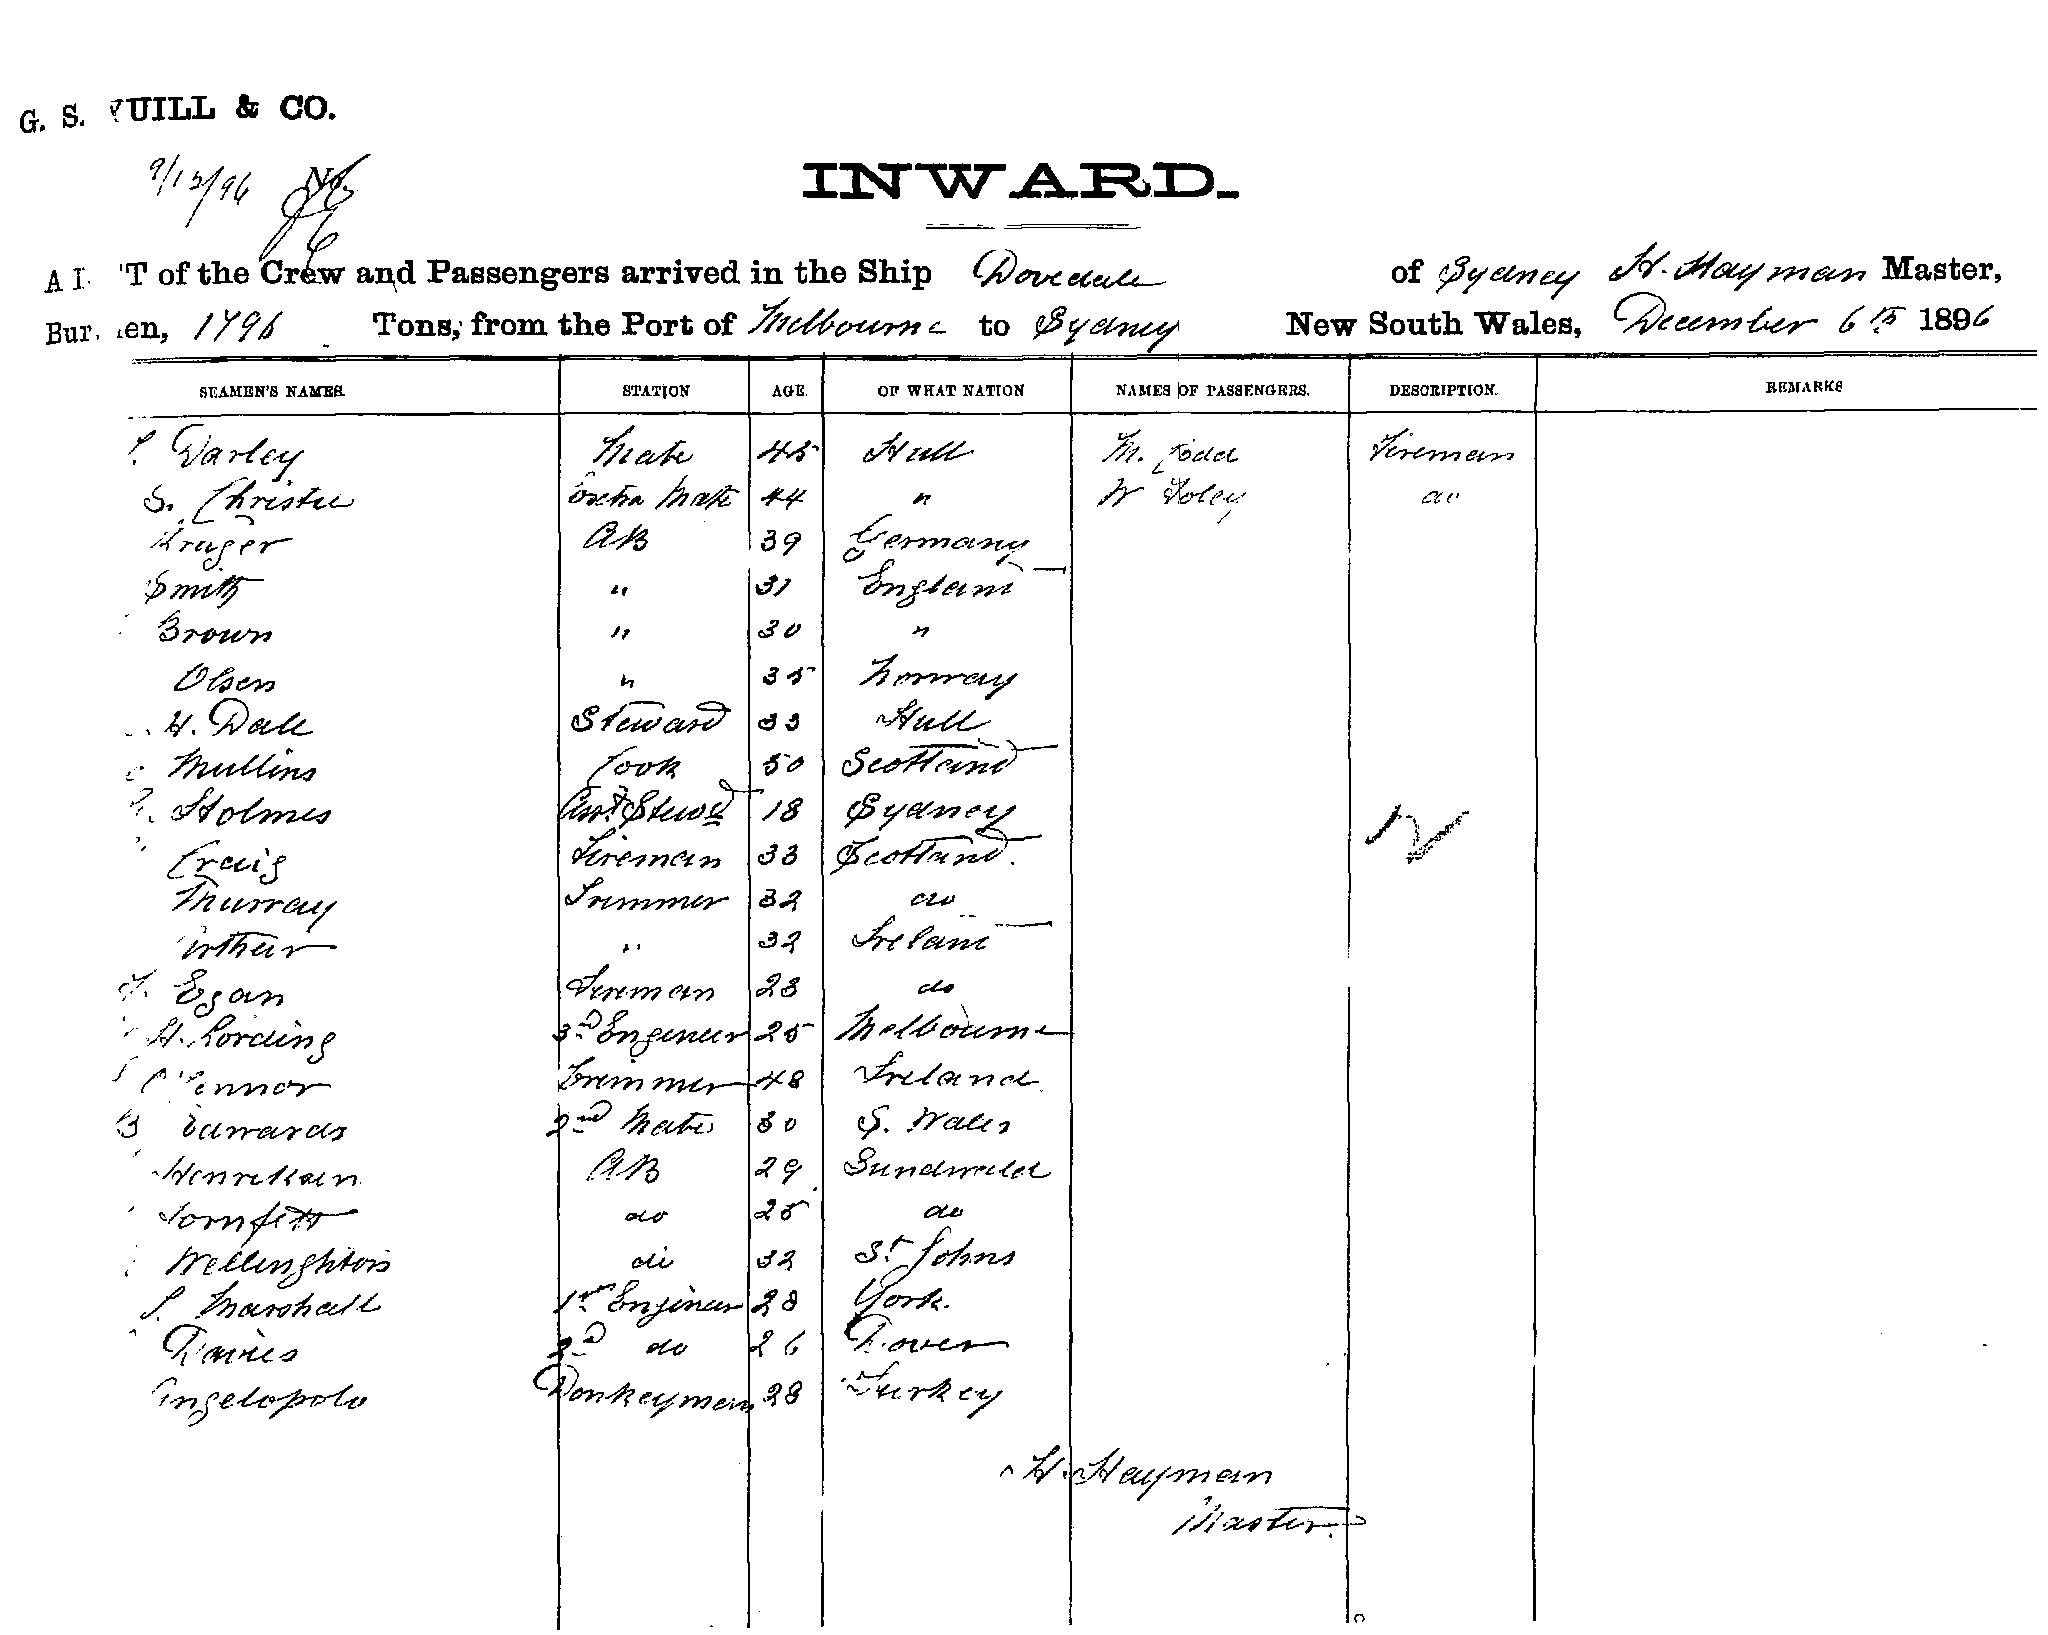 G. S. YUILL & CO.
9/12/96
INWARD.
A LIST of the Crew and Passengers arrived in the Ship Dovedale of Sydney H. Hayman Master,
Burthen, 1796 Tons, from the Port of Melbourne to Sydney New South Wales, December 6th 1896
SEAMEN'S NAMES. STATION AGE. OF WHAT NATION NAMES OF PASSENGERS. DESCRIPTION. REMARKS
Darley Mate 45 Hull M. Todd Fireman
S. Christie Extra Mate 44 " W Foley do
Kruger AB 39 Germany
Smith " 31 England
Brown " 30 "
Olsen " 35 Norway
H. Dale Steward 33 Hull
Mullins Cook 50 Scotland
Holmes Asst. Stewd 18 Sydney
Craig Fireman 33 Scotland.
Murray Trimmer 32 do
Arthur " 32 Ireland
Egan Fireman 28 do
H. Lording 3rd Engineer 25 Melbourne
O'Connor Trimmer 48 Ireland
Edwards 2nd Mate 30 S. Wales
Henriksen AB 29
do 25 do
Wellinghton do 32 St Johns
Marshall 1st Engineer 28 York.
Davies 2d do 26 Dover
Angelopolo Donkeyman 28 Turkey
H. Hayman
Master.